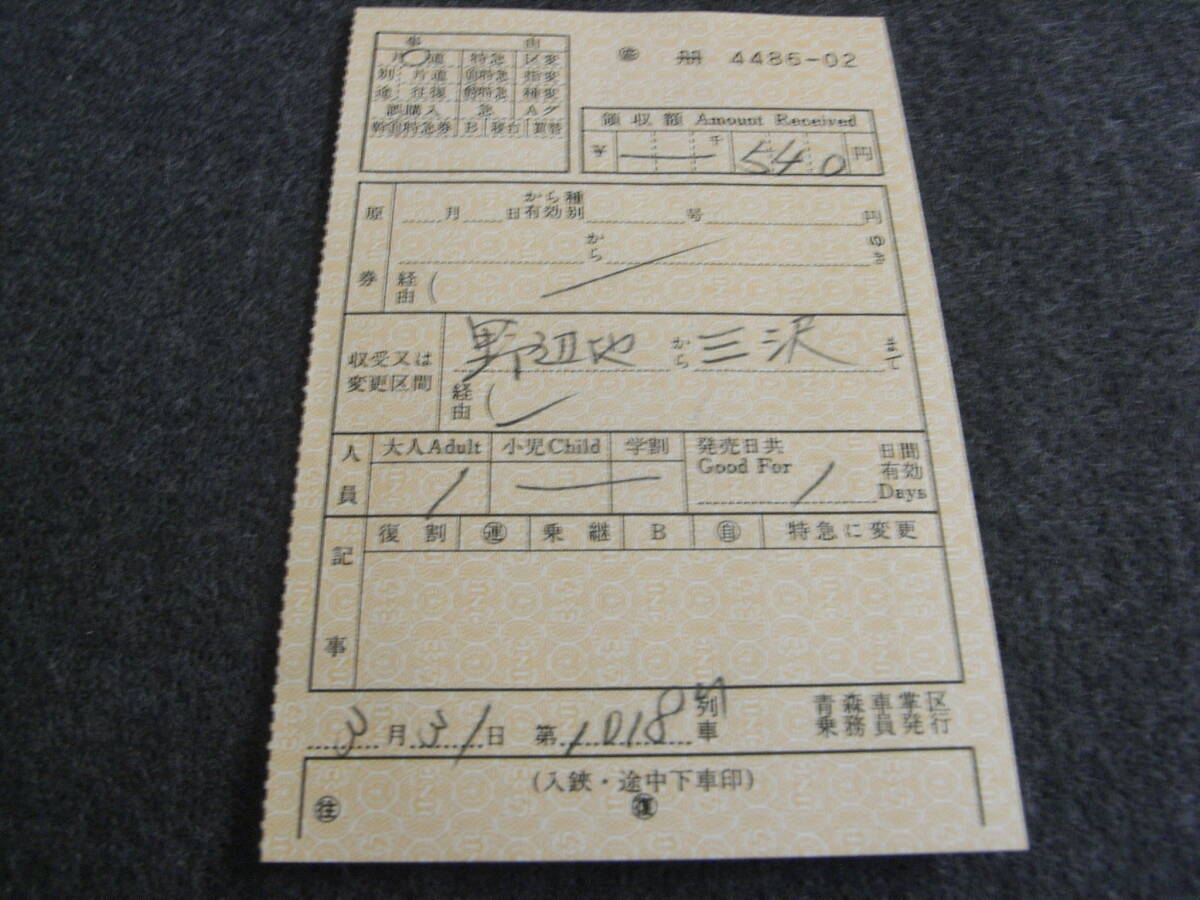 事由
片道 特急 区変
別 片道 自特急 指変
途 往復 特急 種変
誤購入 急 Aグ
幹自特急券 B 寝台 買替
4486-02
領収額 Amount Received
¥ 千 540 円
原券
月 日 から有効 種別 号 円
から ゆき
経由 (
収受又は変更区間
野辺地 から 三沢 まで
経由 (
人員
大人Adult 小児Child 学割 発売日共 日間有効
1 Good For 1 Days
記事
復割 連 乗継 B 自 特急に変更
3月31日 第1018M列車
青森車掌区
乗務員発行
(入鋏・途中下車印)
往 復